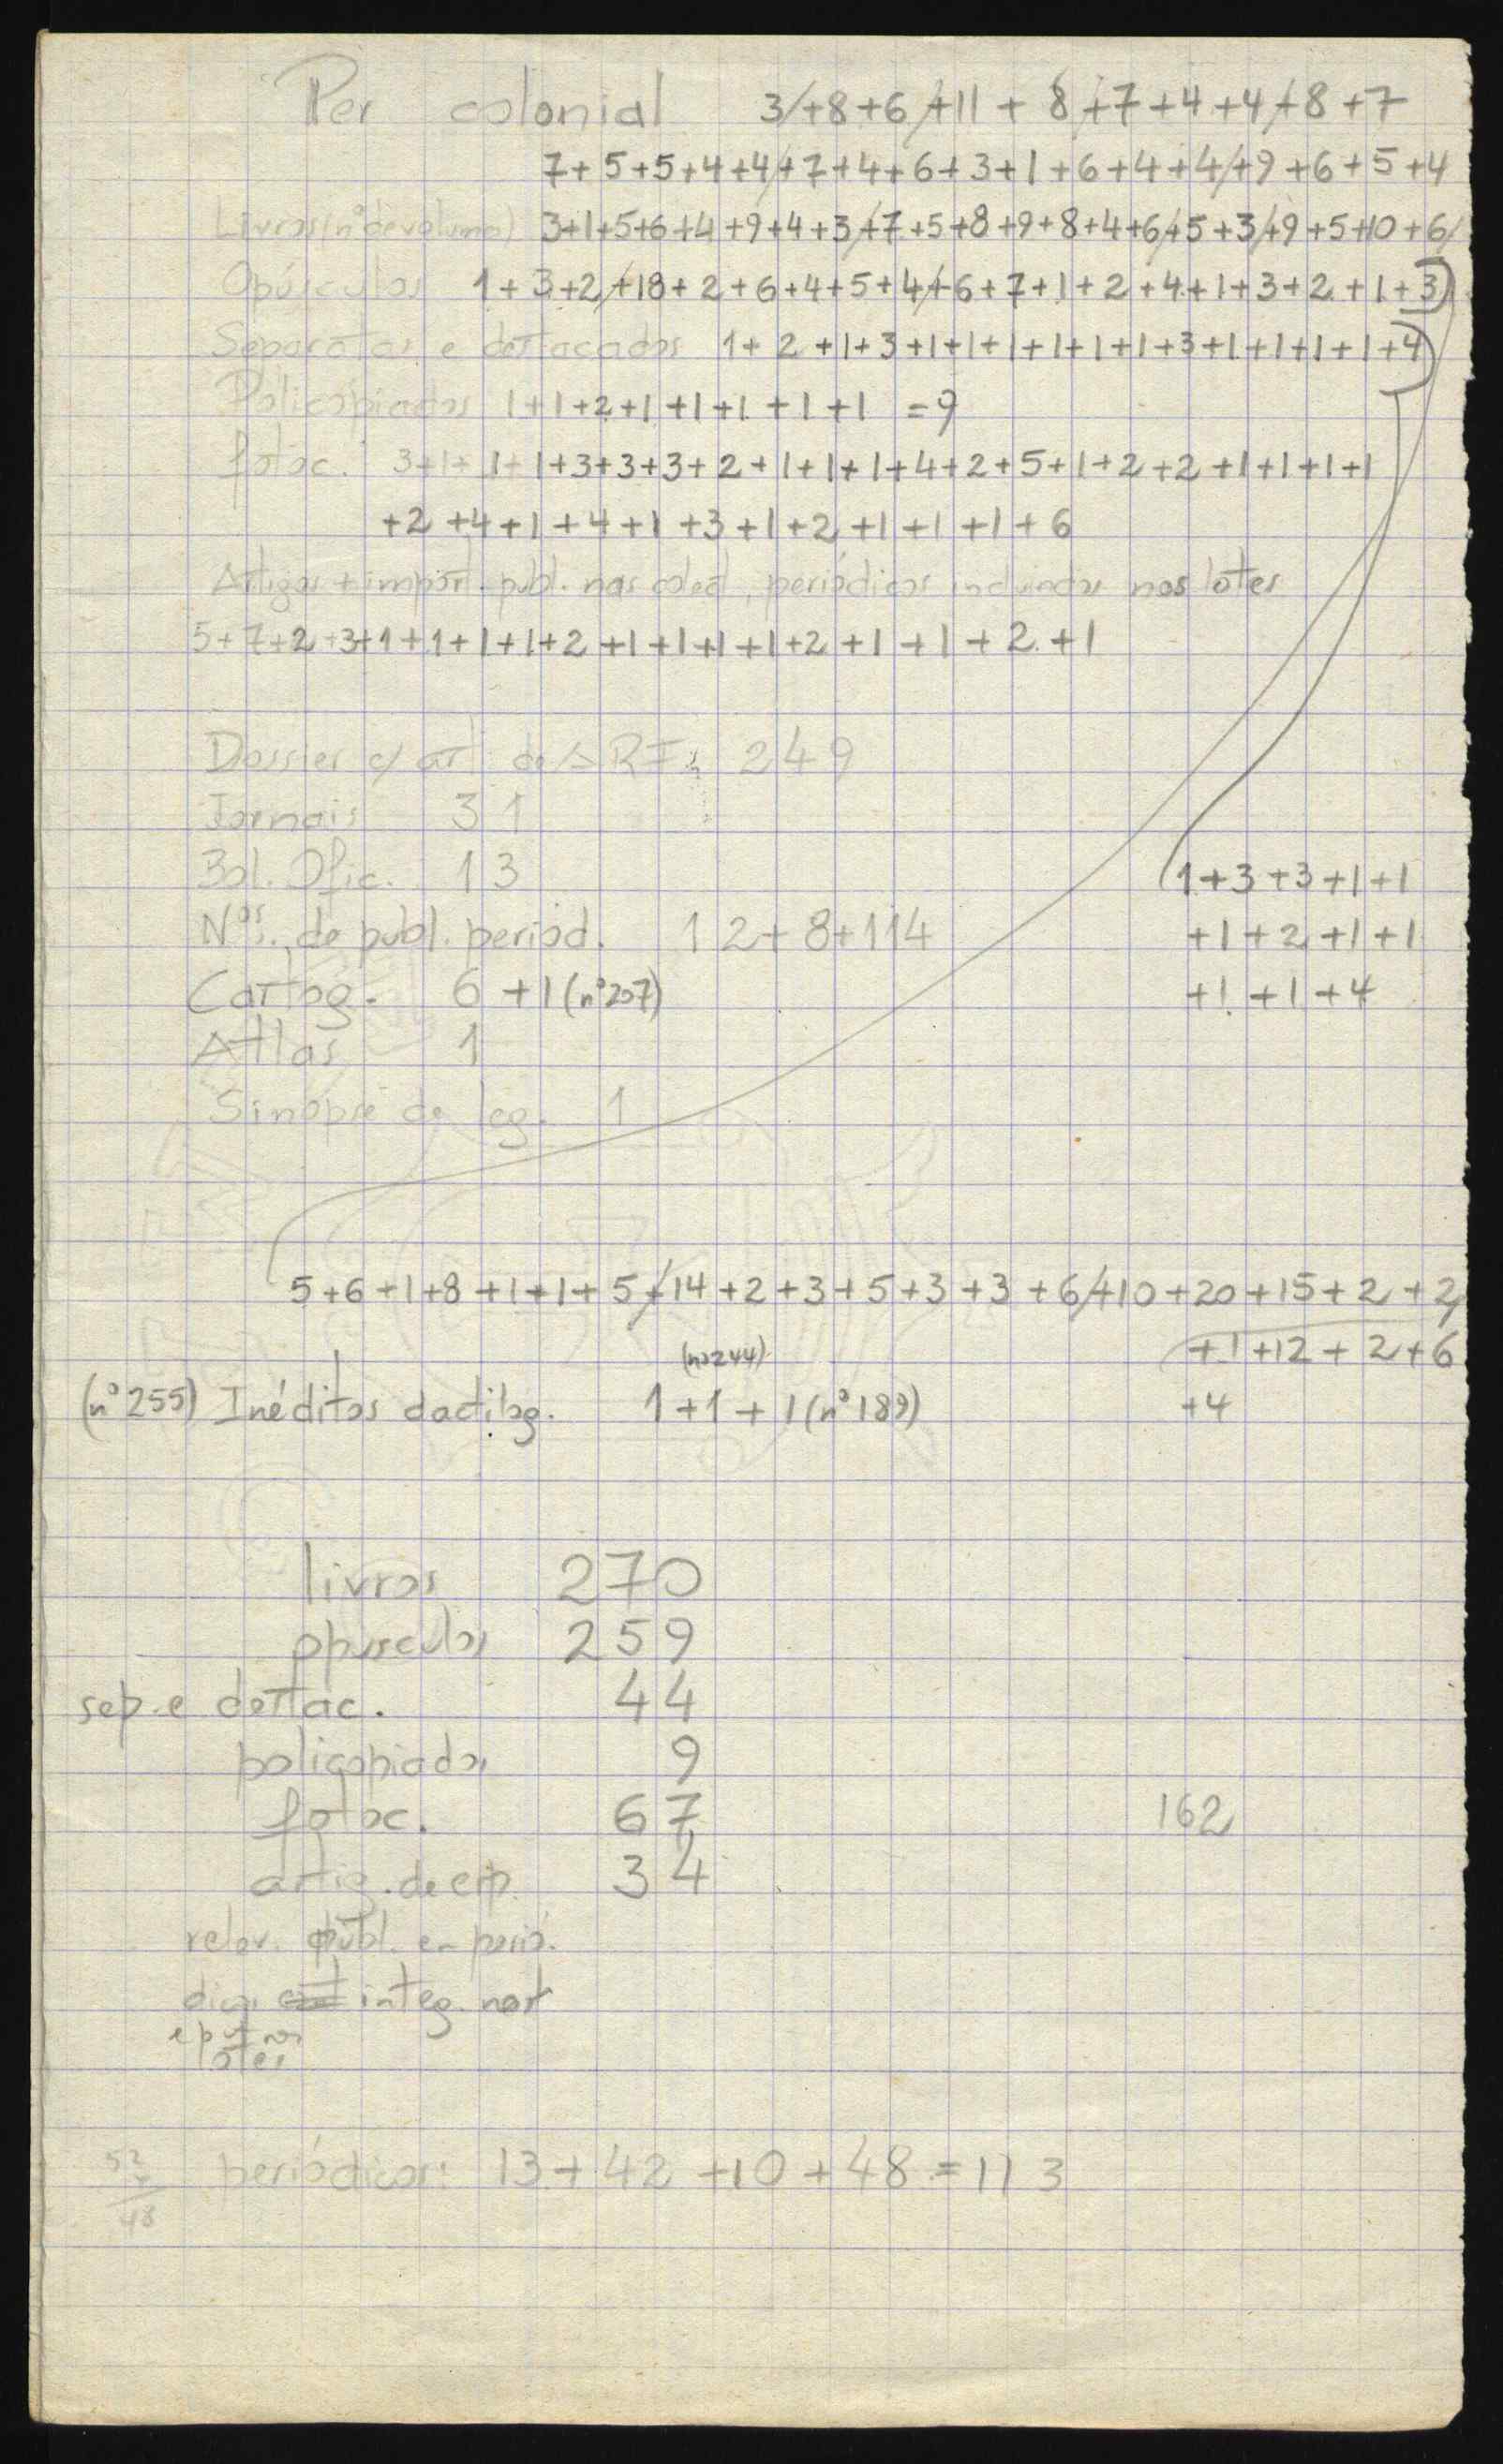 Per colonial 3/+8+6/+11+8/+7+4+4/+8+7
7+5+5+4+4/+7+4+6+3+1+6+4+4/+9+6+5+4
Livros (nº de volumes) 3+1+5+6+4+9+4+3/+7+5+8+9+8+4+6/+5+3/+9+5+10+6/
Opúsculos 1+3+2/+18+2+6+4+5+4/+6+7+1+2+4+1+3+2+1+3)
Separatas e destacados 1+2+1+3+1+1+1+1+1+1+3+1+1+1+1+4)
Policopiados 1+1+2+1+1+1+1+1 =9
fotoc. 3+1+1+1+3+3+3+2+1+1+1+4+2+5+1+2+2+1+1+1+1
+2+4+1+4+1+3+1+2+1+1+1+6
Artigos + import. publ. nas colecc. periódicos incluidos nos lotes
5+7+2+3+1+1+1+1+2+1+1+1+1+2+1+1+2+1
Dossier c/ art. de 249
Jornais 31
Bol. Ofic. 13
(1+3+3+1+1
Nos. de publ. periód. 12+8+114
+1+2+1+1
Cartog. 6+1 (nº 207)
+1+1+4
Atlas 1
Sinopse de leg. 1
5+6+1+8+1+1+5/+14+2+3+5+3+3+6/+10+20+15+2+2
(nº 244)
+1+12+2+6
(nº 255) Inéditos dactilog. 1+1+1 (nº 189)
+4
livros 270
opusculos 259
sep. e destac. 44
policopiados 9
fotoc. 67
162
artig. de esp. 34
relev. publ. em perió-
dicos integ. nest
e outros
lotes
52
48
periódicos: 13+42+10+48=113